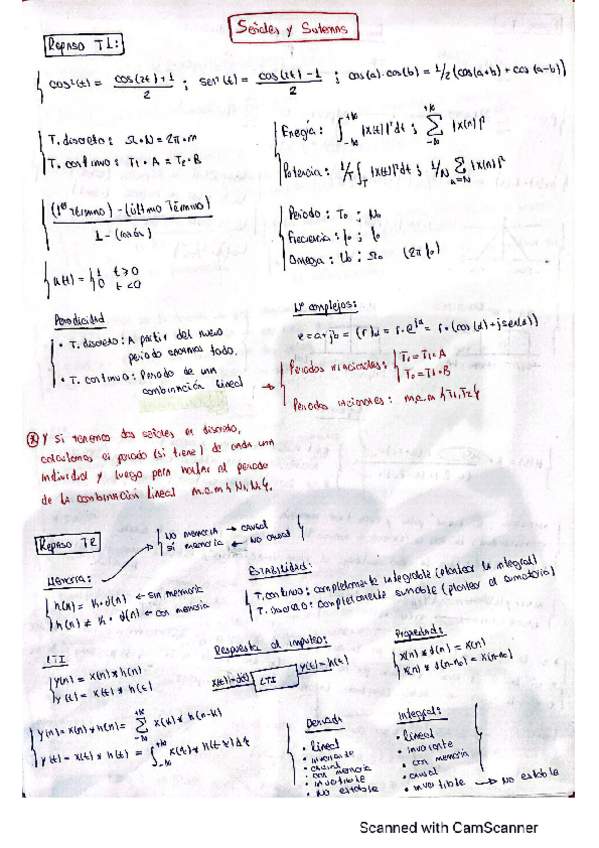 Señales y Sistemas
Repaso T1:
cos²(t) = cos(2t)+1 / 2 ; sen²(t) = cos(2t)-1 / 2 ; cos(a)·cos(b) = 1/2 (cos(a+b) + cos(a-b))
T. discreto: Ω·N = 2π·m
T. continuo: T1·A = T2·B
Energía: ∫ |x(t)|² dt ; Σ |x(n)|²
Potencia: 1/T ∫_T |x(t)|² dt ; 1/N Σ |x(n)|²
(1er término) - (último término)
1 - (razón)
Periodo: T0 ; N0
Frecuencia: f0 ; f0
Omega: ω0 ; Ω0 (2π f0)
u(t) = { 1 t>0
0 t<0
Periodicidad
• T. discreto: A partir del nuevo
periodo todo.
• T. continuo: Periodo de una
combinación lineal
Nº complejos:
z = a+jb = (r)α = r·e^jα = r·(cos(α)+jsen(α))
→ Periodos irracionales: { T0 = T1·A
T0 = T1·B
Periodos racionales: m.c.m {T1,T2}
(*) Y si tenemos dos señales en discreto,
calculamos el periodo (si tiene) de cada una
individual y luego para hallar el periodo
de la combinación lineal m.c.m {N1,N2}.
Repaso T2
No memoria → causal
sí memoria ← No causal
Memoria:
h(n) = K·δ(n) ← sin memoria
h(n) ≠ K·δ(n) ← con memoria
Estabilidad:
T. continuo: completamente integrable (plantear la integral)
T. discreto: completamente sumable (plantear el sumatorio)
LTI
y(n) = x(n) * h(n)
y(t) = x(t) * h(t)
Respuesta al impulso:
x(t)=δ(t) LTI y(t)=h(t)
Propiedades:
x(n) * δ(n) = x(n)
x(n) * δ(n-n0) = x(n-n0)
y(n) = x(n) * h(n) = Σ x(k) * h(n-k)
y(t) = x(t) * h(t) =
Derivada
• lineal
• invariante
• causal
• con memoria
• invertible
• no estable
Integral:
• lineal
• invariante
• con memoria
• causal
• invertible → No estable
Scanned with CamScanner